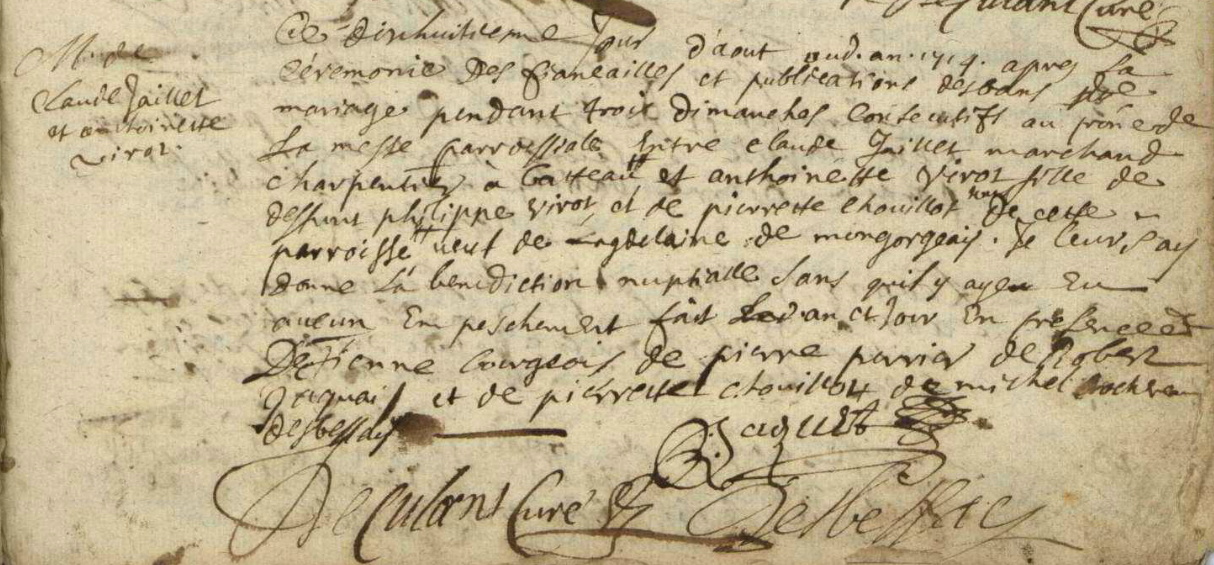 De Culant Curé
M. de
Claude Jaillet
et antoinette
virot.
Ce dixhuitieme Jour d'aout aud. an. 1714. apres La
Cérémonie Des fiancailles et publications desbans de
mariage pendant trois dimanches consecutifs au prône de
La messe parroissiale Entre claude Jaillet marchand
charpentier a batteau et anthoinette virot fille de
deffunt philippe virot, et de pierrette chouillot tous De cette
parroisse veuf de de mongorgeais. Je leurs ay
donne La benediction nuptialle Sans quil y aye Eu
aucun Empeschement fait Les an et Jour En presence
DeEtienne bourgeois de pierre perrier de Robert
Jaquait et de pierrette chouillot de michel
desbessais
R. Jaquet
De Culant Curé Desbessais